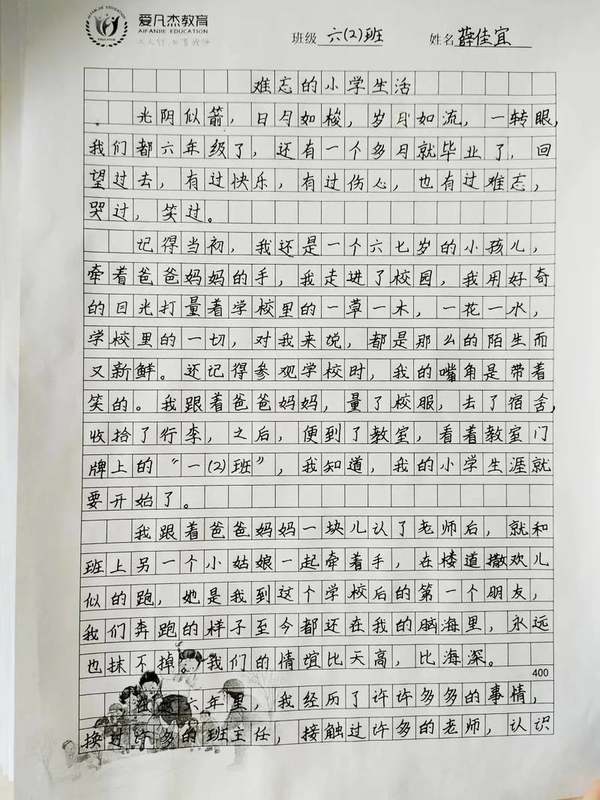 爱凡杰教育
AIFANJIE EDUCATION
班级 六(2)班 姓名 薛佳宜
难忘的小学生活
光阴似箭，日月如梭，岁月如流，一转眼，
我们都六年级了，还有一个多月就毕业了，回
望过去，有过快乐，有过伤心，也有过难忘，
哭过，笑过。
记得当初，我还是一个六七岁的小孩儿，
牵着爸爸妈妈的手，我走进了校园，我用好奇
的目光打量着学校里的一草一木，一花一水，
学校里的一切，对我来说，都是那么的陌生而
又新鲜。还记得参观学校时，我的嘴角是带着
笑的。我跟着爸爸妈妈，量了校服，去了宿舍，
收拾了行李，之后，便到了教室，看着教室门
牌上的“一(2)班”，我知道，我的小学生涯就
要开始了。
我跟着爸爸妈妈一块儿认了老师后，就和
班上另一个小姑娘一起牵着手，在楼道撒欢儿
似的跑，她是我到这个学校后的第一个朋友，
我们奔跑的样子至今都还在我的脑海里，永远
也抹不掉。我们的情谊比天高，比海深。
400
六年里，我经历了许许多多的事情，
换过许多的班主任，接触过许多的老师，认识